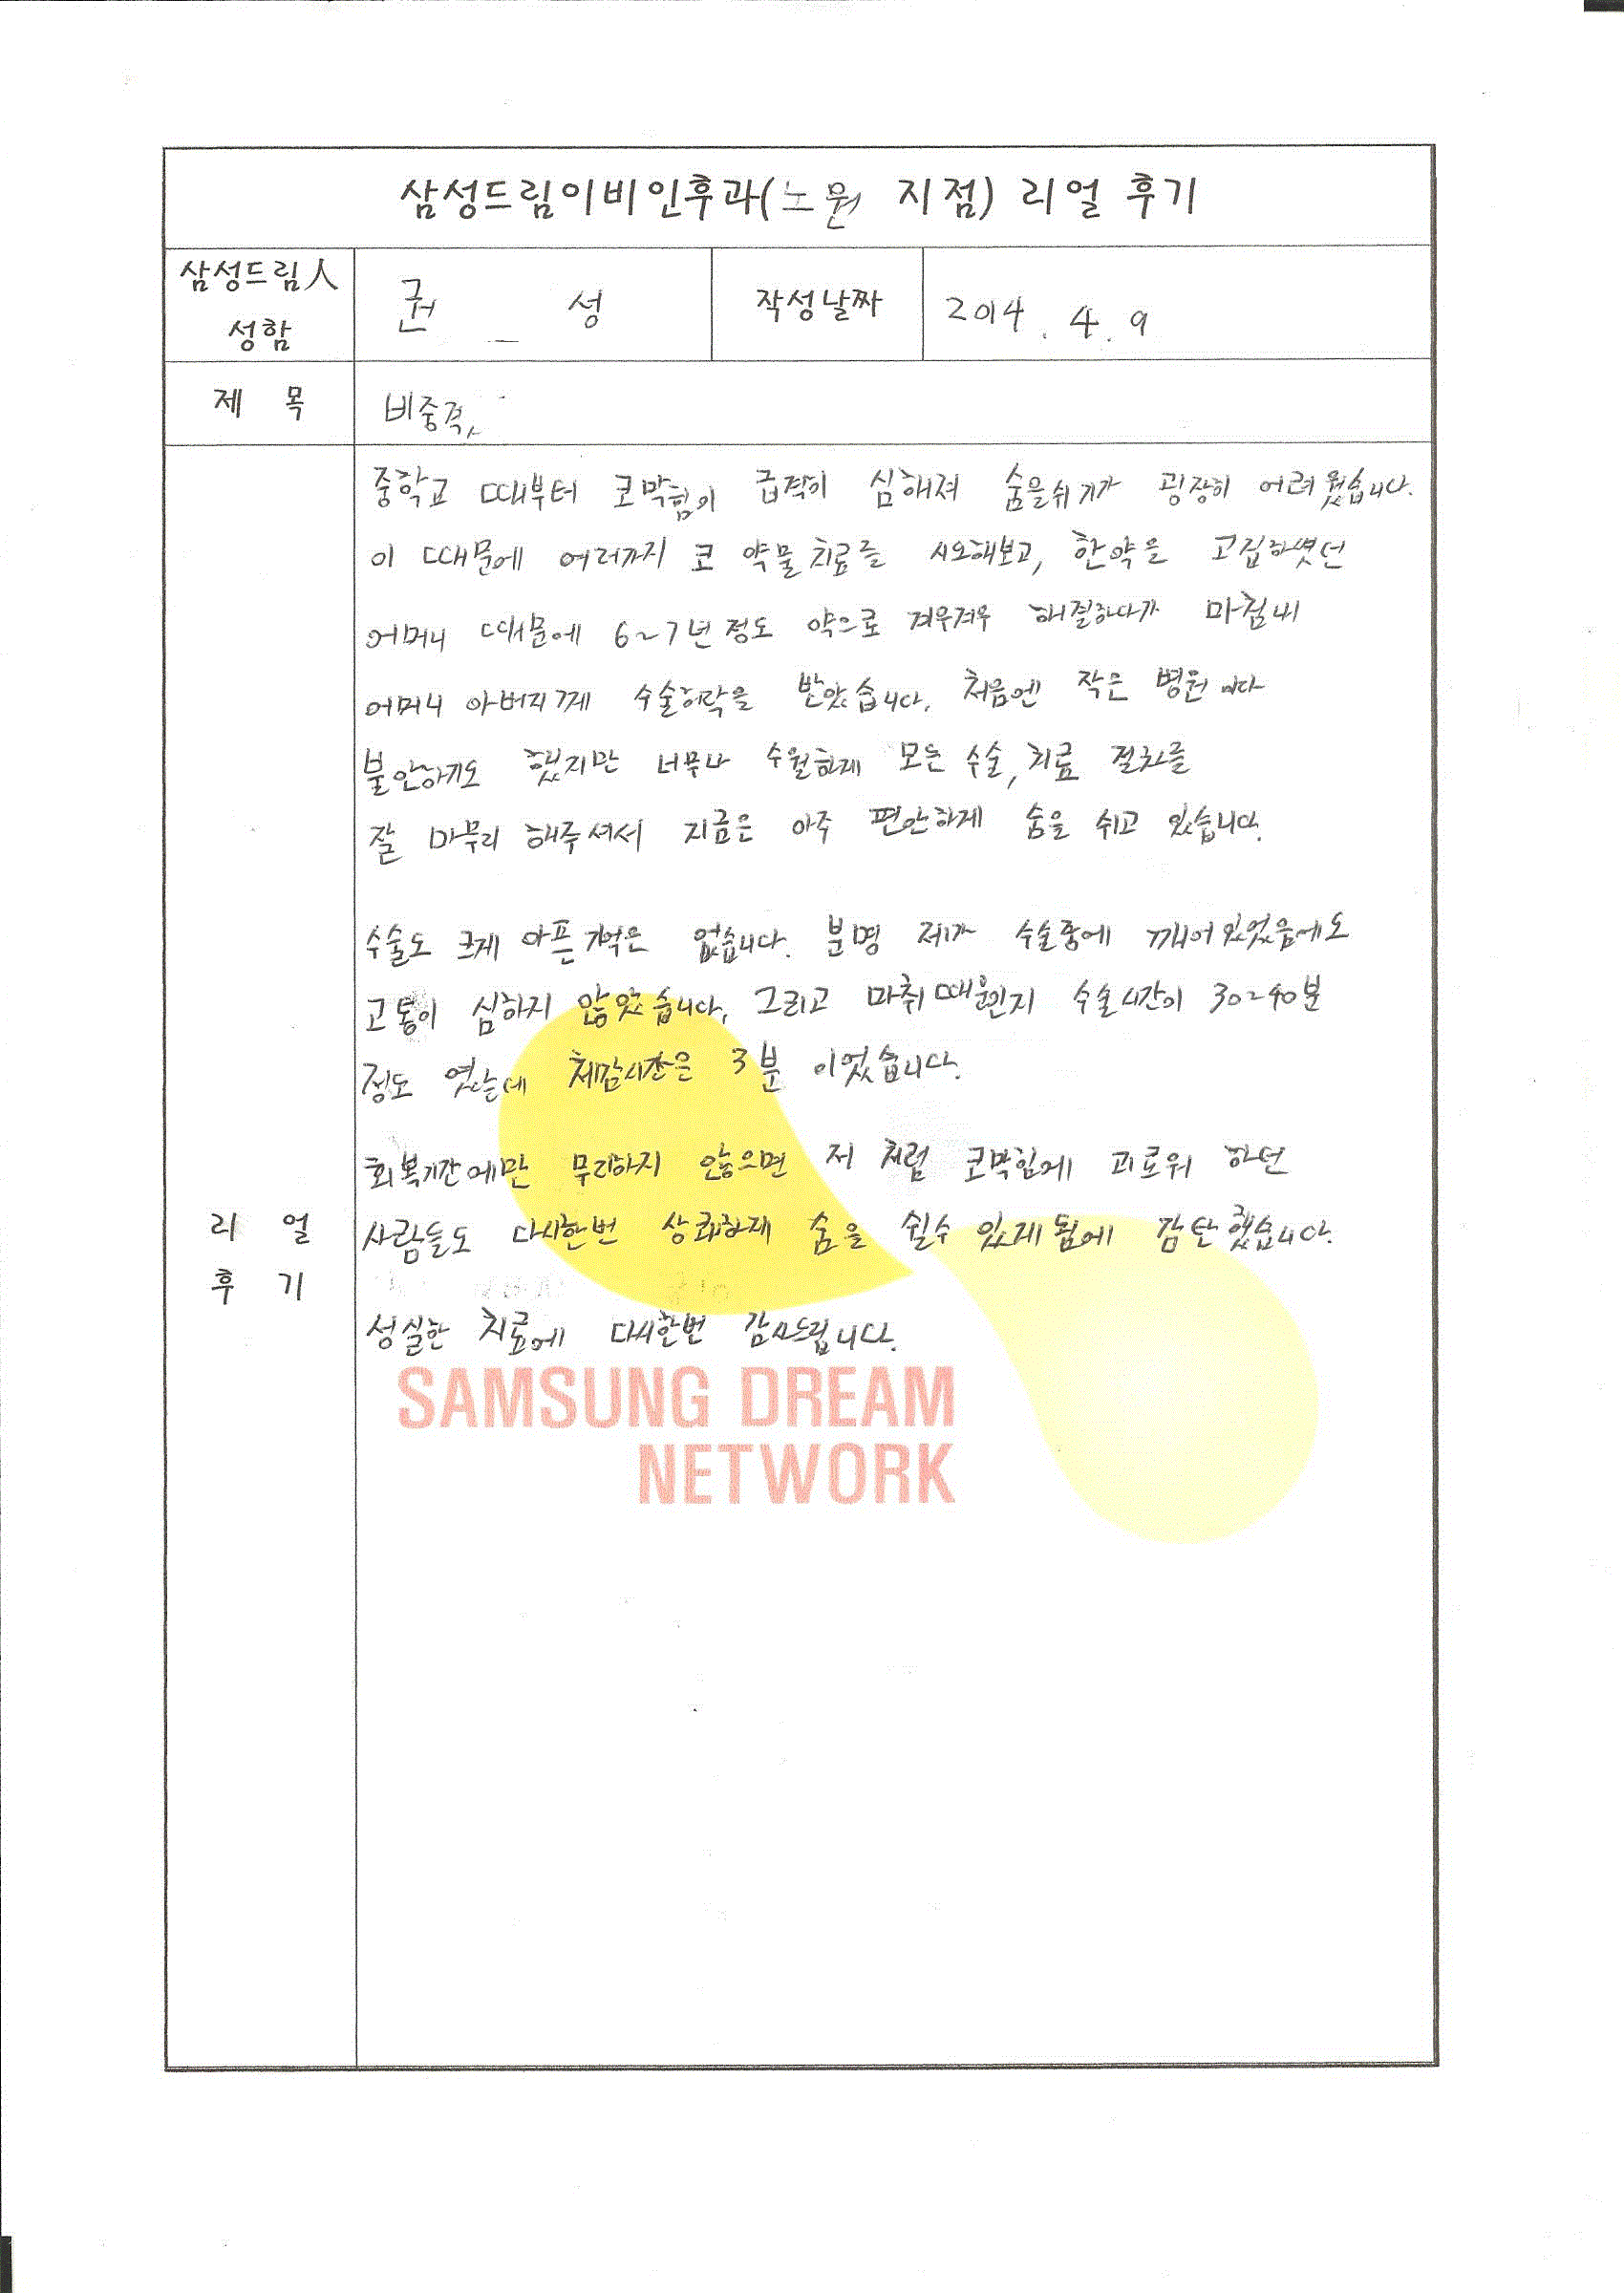 삼성드림이비인후과(노원 지점) 리얼 후기
삼성드림人
성함
권 성
작성날짜
2014. 4. 9
제 목
비중격,
중학교 때부터 코막힘이 급격히 심해져 숨을쉬기가 굉장히 어려웠습니다.
이 때문에 여러가지 코 약물치료를 시도해보고, 한약을 고집하셨던
어머니 때문에 6~7년정도 약으로 겨우겨우 해결하다가 마침내
어머니 아버지께 수술허락을 받았습니다. 처음엔 작은 병원이라
불안하기도 했지만 너무나 수월하게 모든 수술, 치료 절차를
잘 마무리 해주셔서 지금은 아주 편안하게 숨을 쉬고 있습니다.
수술도 크게 아픈기억은 없습니다. 분명 제가 수술중에 깨어있었음에도
고통이 심하지 않았습니다, 그리고 마취때문인지 수술시간이 30~40분
정도 였는데 체감시간은 3분 이었습니다.
회복기간에만 무리하지 않으면 저 처럼 코막힘에 괴로워 하던
사람들도 다시한번 상쾌하게 숨을 쉴수 있게됨에 감탄했습니다.
성실한 치료에 다시한번 감사드립니다.
리 얼
후 기
SAMSUNG DREAM
NETWORK